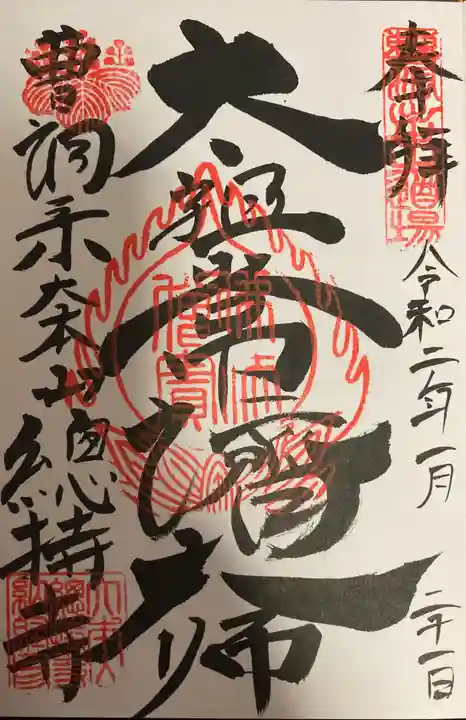 奉拝
令和二年一月
二十一日
太祖常濟大師
曹洞宗大本山總持寺